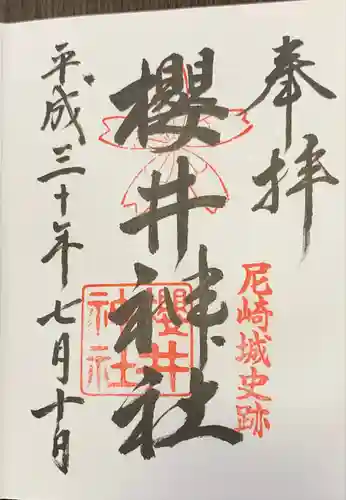 奉拝
尼崎城史跡
櫻井神社
櫻井
神社
平成三十年七月十日